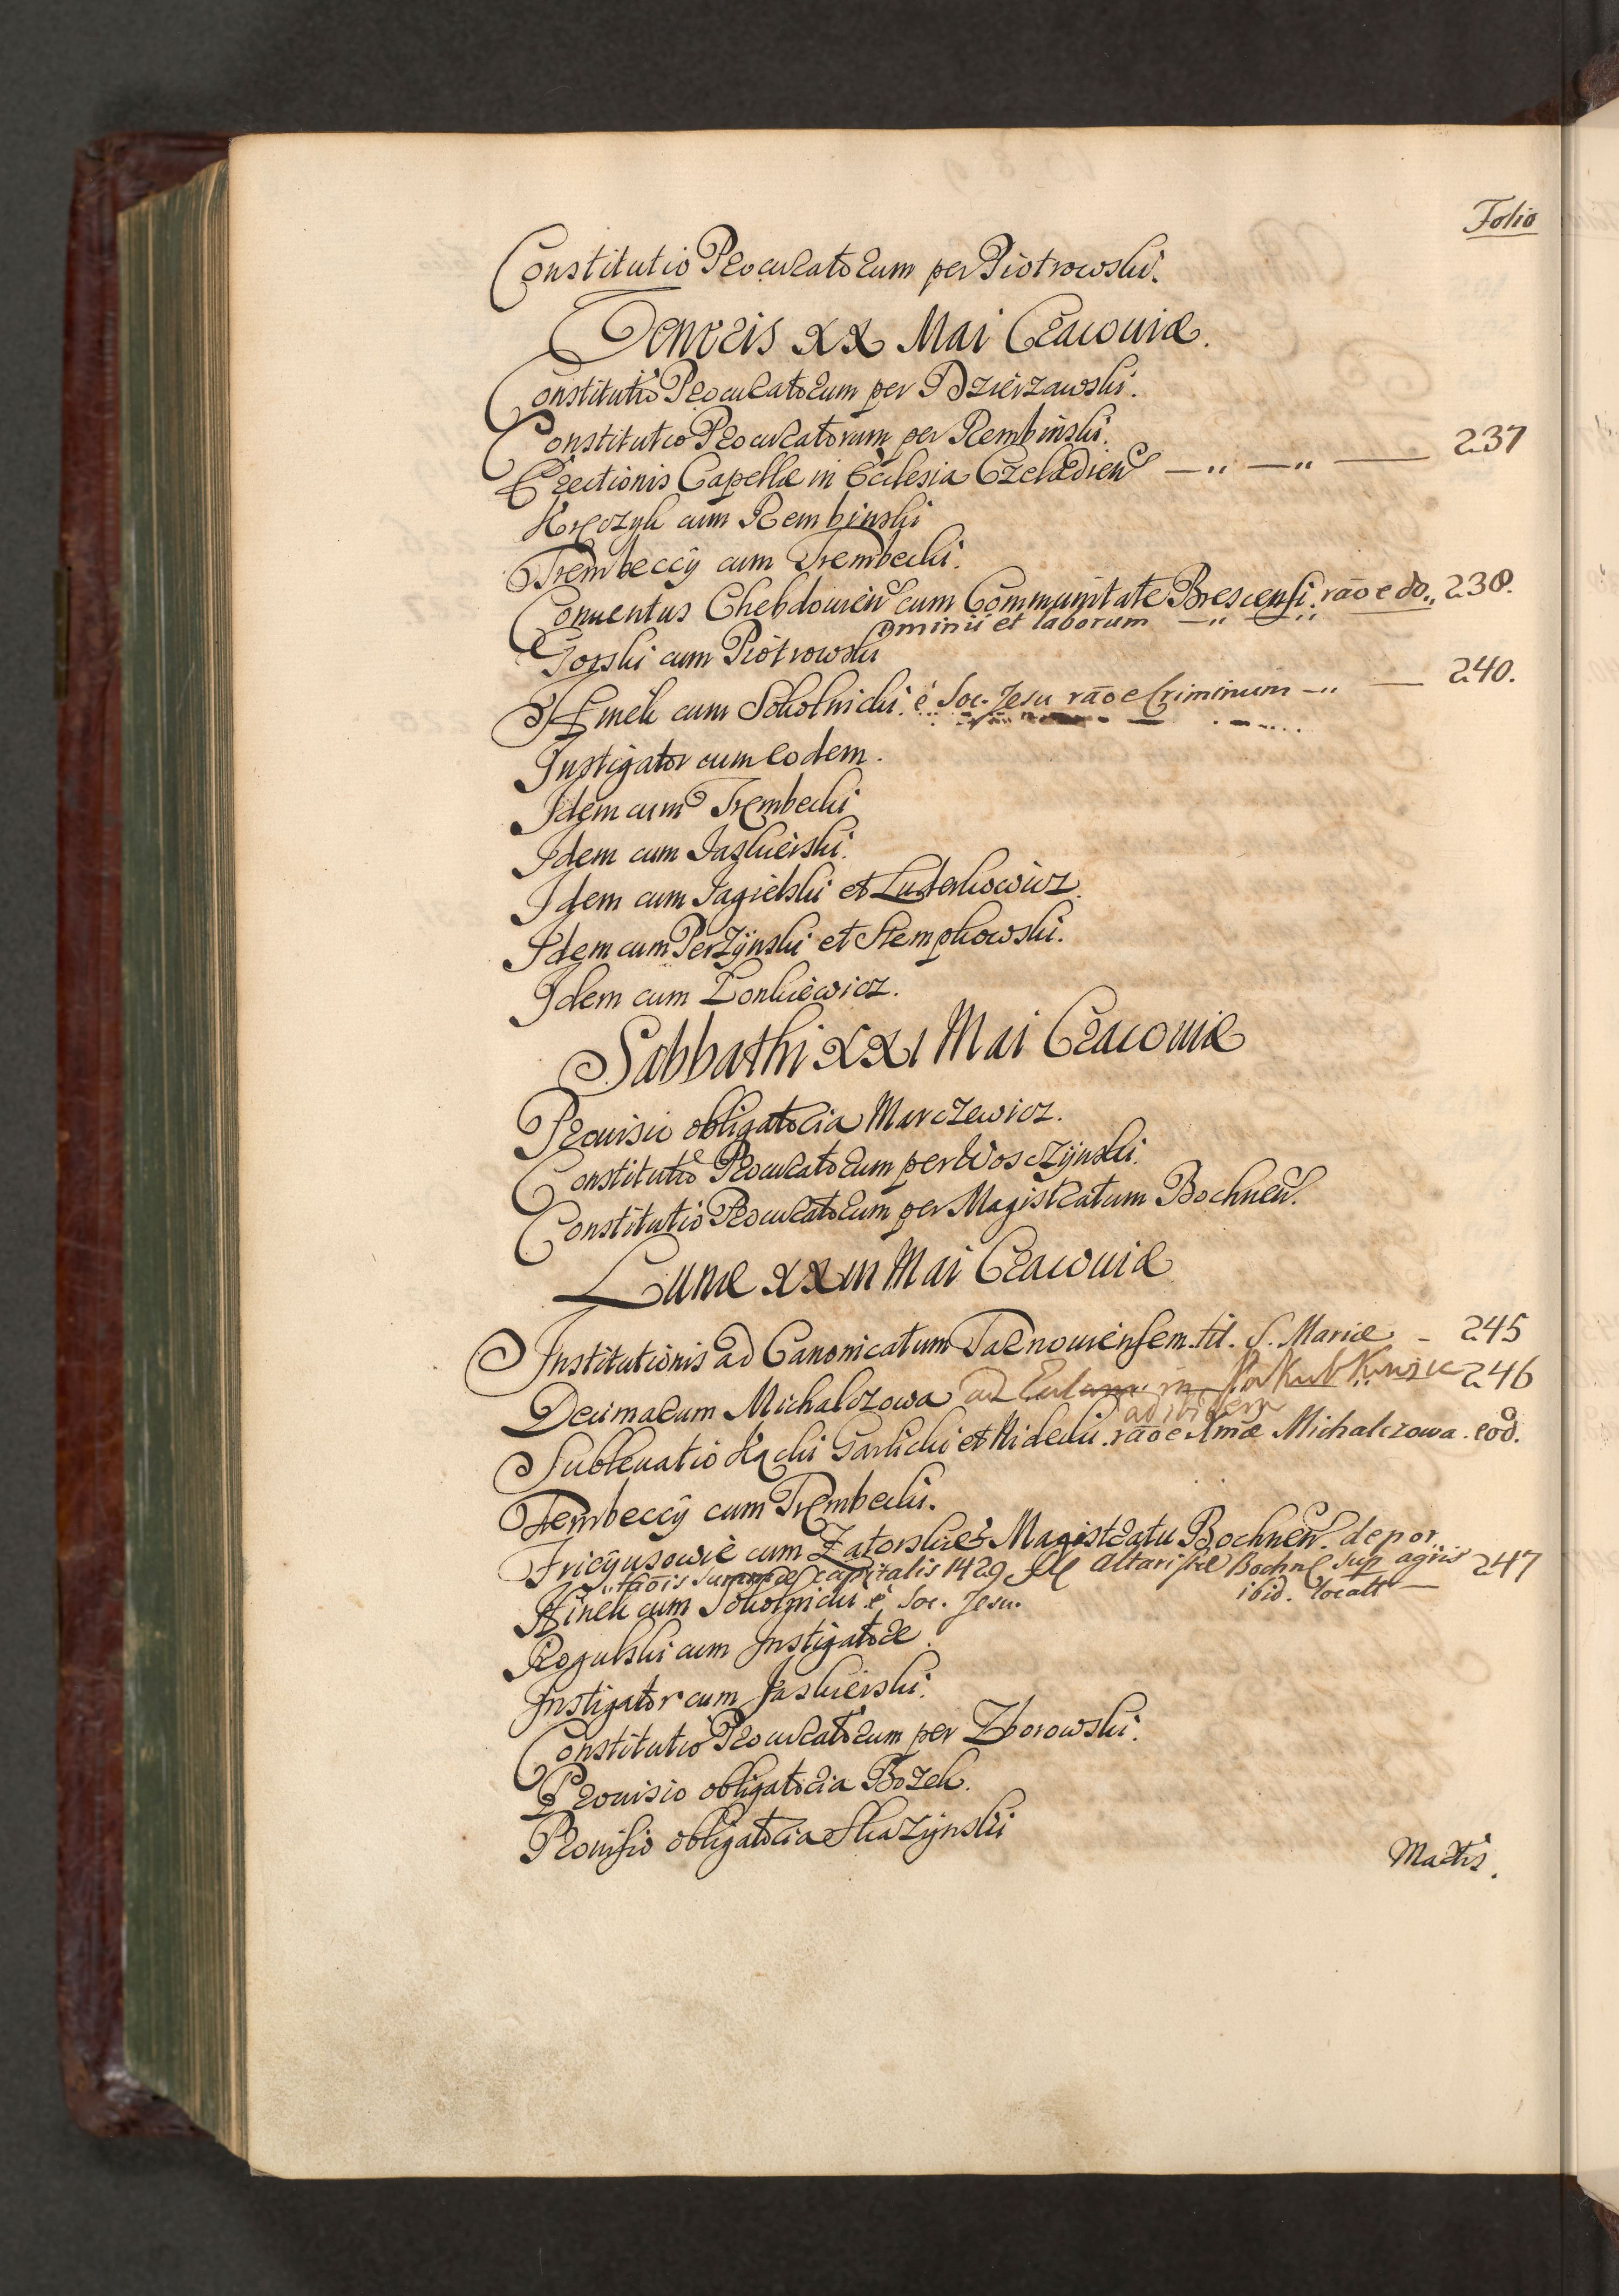 Folio
Constitutio Procuratorum per Piotrowski.
Veneris XX Mai Cracoviæ.
Constitutio Procuratorum per Dzierzawski.
Constitutio Procuratorum per Rembinski.
Erectionis Capellæ in Ecclesia Czeladien — „ — „ — 237
Kręczyk cum Rembinski
Trembeccy cum Trembecki.
Conventus Chebdovien cum Communitate Brescensi. raõe do„ 238.
minii et laborum — „ — „
Gorski cum Piotrowski
Hinek cum Sokolnicki. è Soc. Jesu raõe Criminum — „ — 240.
Instigator cum eodem.
Idem cum Trembecki
Idem cum Jaskierski.
Idem cum Jagielski et Luterkowicz.
Idem cum Perzynski et Stempkowski.
Idem cum Lonkiewicz.
Sabbathi XXI Mai Cracoviæ
Provisio obligatoria Marczewicz.
Constitutio Procuratorum per Wosczynski.
Constitutio Procuratorum per Magistratum Bochnen.
Lunæ XXIII Mai Cracoviæ
Institutionis ad Canonicatum Tarnoviensem. tit. S. Mariæ - 245
Decimarum Michalczowa ad in 246
ad ibidem
Sublevatio Kącki Garlicki et Nidecki. raõe Xmæ Michalczowa. eod.
Trembeccy cum Trembecki.
Fricyusowie cum Zatorski et Magistratu Bochnen. depor„
„tãois summæ capitalis 1429 Altaristæ Bochn sup agris 247
ibid. locatt —
Hinek cum Sokolnicki è Soc. Jesu.
Rogulski cum Instigatore.
Instigator cum Jaskierski.
Constitutio Procuratorum per Zborowski.
Provisio obligatoria Bozek.
Provisio obligatoria Skazynski
Martis.